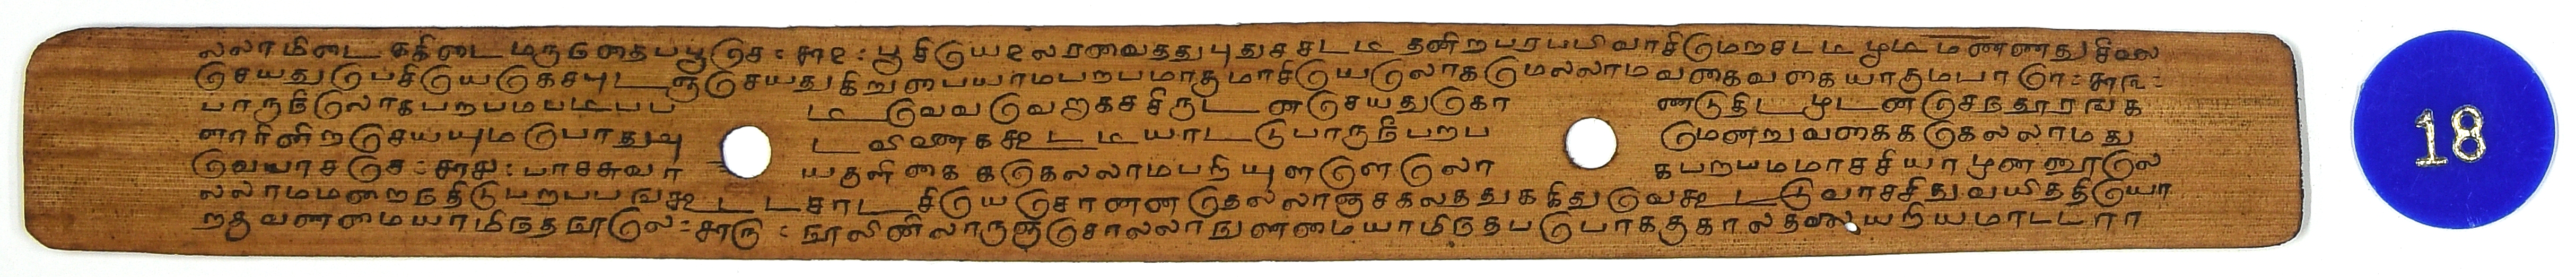 லலாமிடை ககிடை மருநதைபபூசெ : ௱உ : பூசியெ உலரவைதது புதுசசடடி தனிறபரபபிவாசிமெறசடடி மூடி மணணதுசீலை
செயதுபெசியெகெசபுடஞசெயதுகிறுபையாமபறபமாகுமாசியெலொகமெலலாம வகைவகையாகுமபாரொ : ௱௩ :
பாருநீலொகபறபமபடிபப டடவெவவெறகசசிருடனசெயதுகொ ணடுதிடமூடனசெநதூரஙக
ளாரினிறசெயயுமபொதுவு டவிணகசூடடியாடடுபாருநீபறப மெனறுவகைககெலலாமது
வெயாசசெ : ௱௪ : பாசசுவா யகுளிகை ககெலலாமபநியுளளெலொ கபறபமமாசசியாமுனனூலெ
லலாமமறைநதிடுபறபபஙசூடடசாடசியெசொனனதெலலாஞசகலததுககிதுவெசூடடுவாசசிதுவயிததியொ
றகுவணமையாமிநதநூலெ : ௱௫ : நூலினிலாருஞசொலலாநுணமையாமிநதபடுபாககுகாலதலையறியமாடடாரா
18